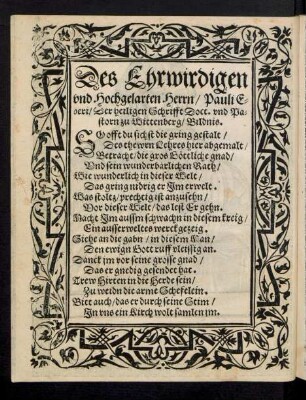 Des Ehrwirdigen
vnd Hochgelarten Herrn / Pauli E-
beri / Der heiligen Schrifft Doct. vnd Pa-
storn zu Wittenberg / Bildnis.
SO offt du sihst die gring gestalt /
Des thewren Lehrers hier abgemalt /
Betracht / die gros Göttliche gnad /
Vnd sein wunderbarlichen Rath /
Wie wunderlich in dieser Welt /
Das gring nidrig er Im erwelt.
Was stoltz / prechtig ist anzusehn /
Vor dieser Welt / das lest Er gehn.
Macht Im aussm schwachn in diesem kreig /
Ein ausserweltes werckgezeig.
Siehe an die gabn / in diesem Man /
Den ewign Gott ruff vleissig an.
Danck jm vor seine grosse gnad /
Das er gnedig gesendet hat.
Trew Hirten in die Herde sein /
Zu weidn die arme Schefelein.
Bitt auch / das er durch seine Stim /
Jn vns ein Kirch wolt samlen jm.